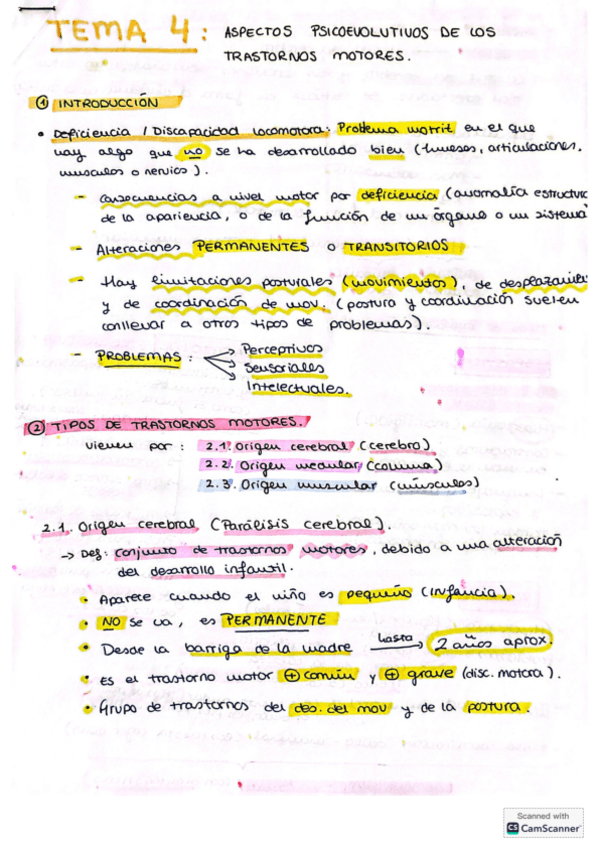 TEMA 4: ASPECTOS PSICOEVOLUTIVOS DE LOS
TRASTORNOS MOTORES.
① INTRODUCCIÓN
• Deficiencia / Discapacidad locomotora: Problema motriz en el que
hay algo que no se ha desarrollado bien (huesos, articulaciones,
musculos o nervios).
- Consecuencias a nivel motor por deficiencia (anomalía estructura
de la apariencia, o de la función de un órgano o un sistema
- Alteraciones PERMANENTES O TRANSITORIOS
- Hay limitaciones posturales (movimientos), de desplazamie
y de coordinación de mov. (postura y coordinación suelen
conllevar a otros tipos de problemas).
- PROBLEMAS: → Perceptivos
→ Sensoriales
→ Intelectuales.
② TIPOS DE TRASTORNOS MOTORES.
vienen por: 2.1. Origen cerebral (cerebro)
2.2. Origen medular (columna)
2.3. Origen muscular (músculos)
2.1. Origen cerebral (Parálisis cerebral).
→ Def: conjunto de trastornos motores, debido a una alteración
del desarrollo infantil.
• Aparece cuando el niño es pequeño (infancia).
• NO se va, es PERMANENTE
• Desde la barriga de la madre hasta → 2 años aprox.
• Es el trastorno motor ⊕ común y ⊕ grave (disc. motora).
• Grupo de trastornos del des. del mov y de la postura.
Scanned with
CS CamScanner